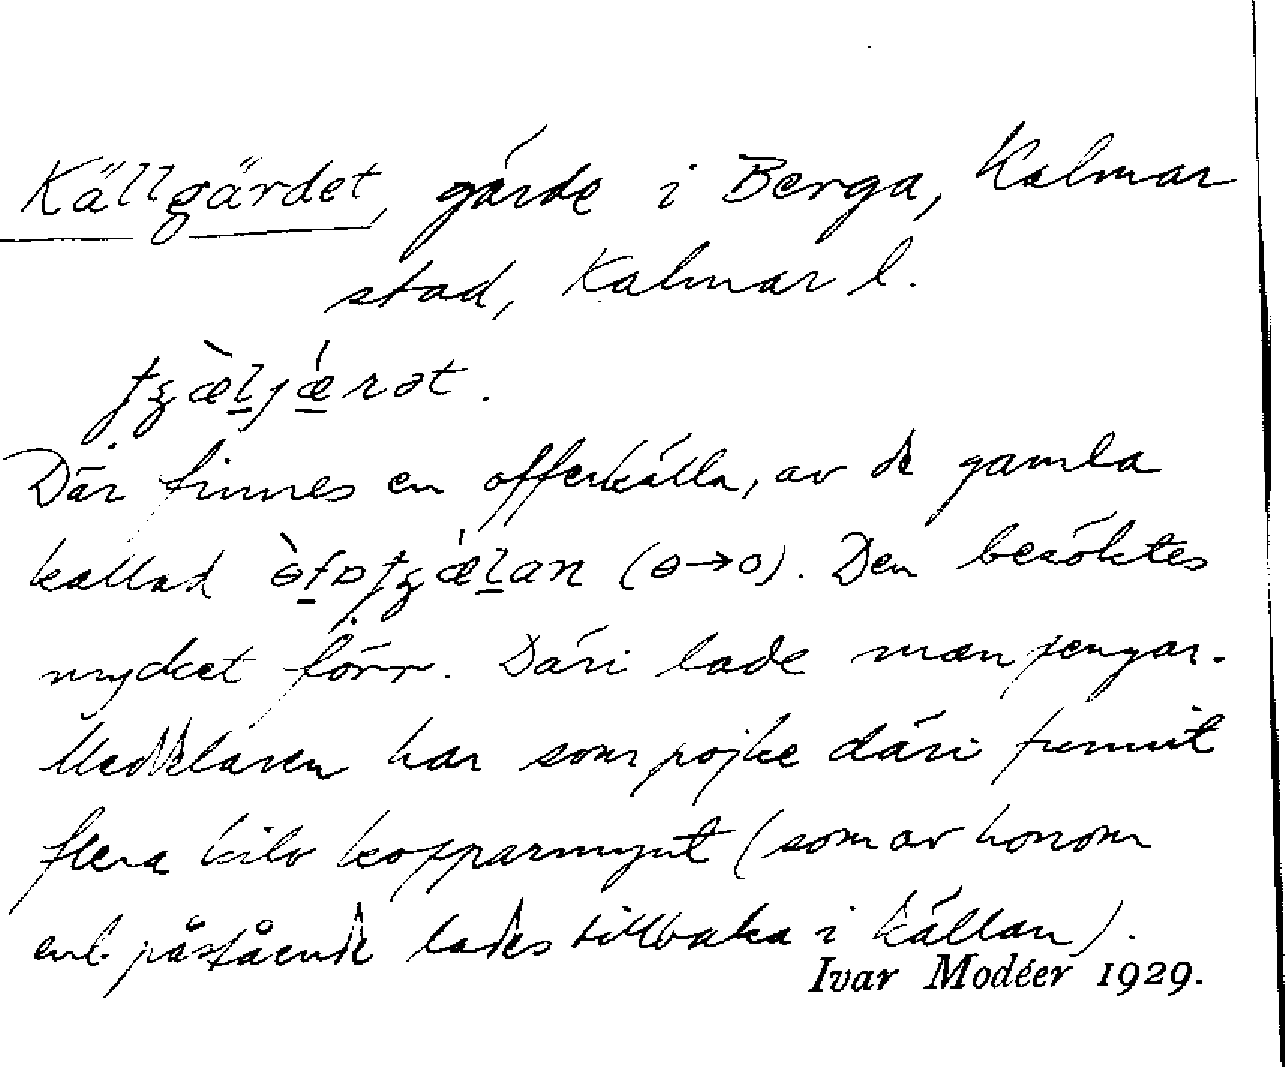 Källgärdet, gärde i Berga, Kalmar
stad, Kalmar l.
Där finnes en offerkälla, av de gamla
kallad (ə→o). Den besöktes
mycket förr. Däri lade man pengar.
Meddelaren har som pojke däri funnit
flera kilo kopparmynt (som av honom
enl. påstående lades tillbaka i källan).
Ivar Modéer 1929.